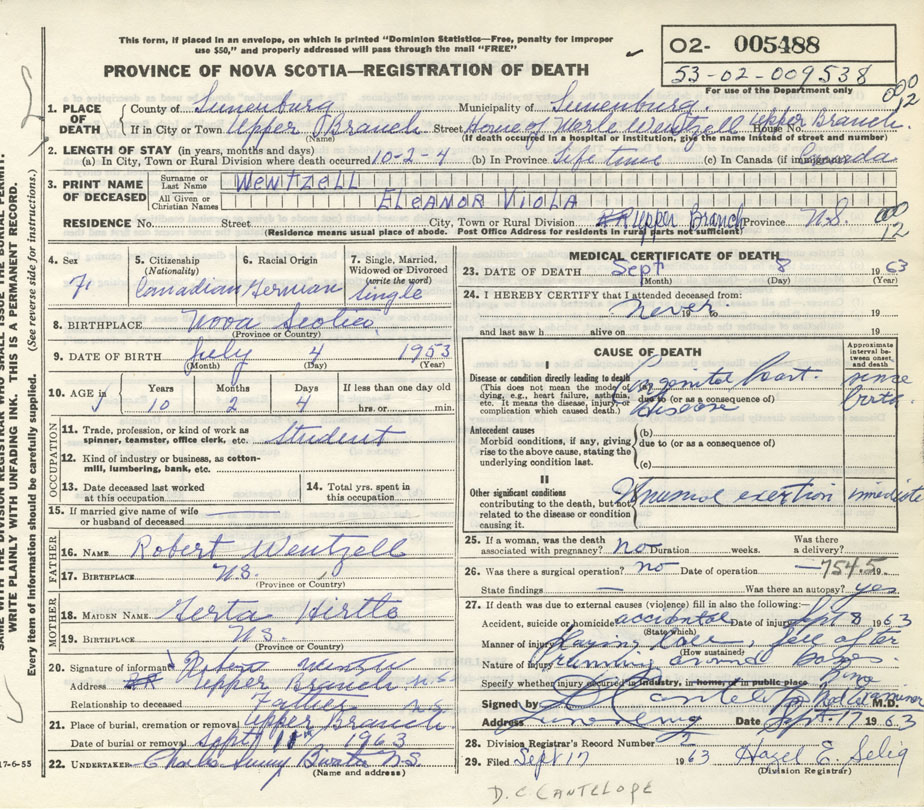 This form, if placed in an envelope, on which is printed "Dominion Statistics—Free, penalty for improper
use $50," and properly addressed will pass through the mail "FREE"
PROVINCE OF NOVA SCOTIA—REGISTRATION OF DEATH
02- 005488
53-02-009538
For use of the Department only
000
12
1. PLACE OF DEATH
County of Lunenburg Municipality of Lunenburg.
If in City or Town Upper Branch Street Home of Merle Wentzell House No. Upper Branch.
(Name) (If death occurred in a hospital or institution, give the name instead of street and number)
2. LENGTH OF STAY (in years, months and days)
(a) In City, Town or Rural Division where death occurred 10-2-4 (b) In Province Life time (c) In Canada (if immigrant) Canada
3. PRINT NAME OF DECEASED
Surname or Last Name WENTZELL
All Given or Christian Names ELEANOR VIOLA
RESIDENCE No. Street City, Town or Rural Division Upper Branch Province N.S.
(Residence means usual place of abode. Post Office Address for residents in rural parts not sufficient)
000
12
4. Sex F.
5. Citizenship (Nationality) Canadian
6. Racial Origin German
7. Single, Married, Widowed or Divorced (write the word) Single
8. BIRTHPLACE Nova Scotia.
(Province or Country)
9. DATE OF BIRTH July 4 1953
(Month) (Day) (Year)
10. AGE in Years 10 Months 2 Days 4 If less than one day old hrs. or min.
OCCUPATION
11. Trade, profession, or kind of work as spinner, teamster, office clerk, etc. Student
12. Kind of industry or business, as cotton-mill, lumbering, bank, etc.
13. Date deceased last worked at this occupation
14. Total yrs. spent in this occupation
15. If married give name of wife or husband of deceased
FATHER
16. NAME Robert Wentzell
17. BIRTHPLACE N.S.
(Province or Country)
MOTHER
18. MAIDEN NAME Gerta Hirtle
19. BIRTHPLACE N.S.
(Province or Country)
20. Signature of informant Robert Wentzell
Address Upper Branch N.S.
Relationship to deceased Father
21. Place of burial, cremation or removal Upper Branch N.S.
Date of burial or removal Sept 1963
22. UNDERTAKER Charles N.S.
(Name and address)
MEDICAL CERTIFICATE OF DEATH
23. DATE OF DEATH Sept 8 1963
(Month) (Day) (Year)
24. I HEREBY CERTIFY that I attended deceased from:
never 19 to 19
and last saw h alive on 19
CAUSE OF DEATH
Approximate interval between onset and death
I
Disease or condition directly leading to death
(This does not mean the mode of dying, e.g., heart failure, asthenia, etc. It means the disease, injury, or complication which caused death.)
(a) Congenital heart disease since birth
due to (or as a consequence of)
Antecedent causes
Morbid conditions, if any, giving rise to the above cause, stating the underlying condition last.
(b)
due to (or as a consequence of)
(c)
II
Other significant conditions contributing to the death, but not related to the disease or condition causing it.
Unusual exertion imediate
25. If a woman, was the death associated with pregnancy? no Duration weeks. Was there a delivery?
26. Was there a surgical operation? no Date of operation — 19
7545
State findings — Was there an autopsy? yes
27. If death was due to external causes (violence) fill in also the following:—
Accident, suicide or homicide accidental Date of injury Sept 8 1963
(State which)
Manner of injury Playing ball, fell after
(How sustained)
Nature of injury running around bases
Specify whether injury occurred in industry, in home, or in public place home
Signed by D C Cantelope Med Examiner M.D.
Address Lunenburg Date Sept. 17 1963
28. Division Registrar's Record Number 2
29. Filed Sept 17 1963 Hazel E. Selig
(Division Registrar)
D.C. CANTELOPE
WRITE PLAINLY WITH UNFADING INK. THIS IS A PERMANENT RECORD.
Every item of information should be carefully supplied. (See reverse side for instructions.)
17-6-55